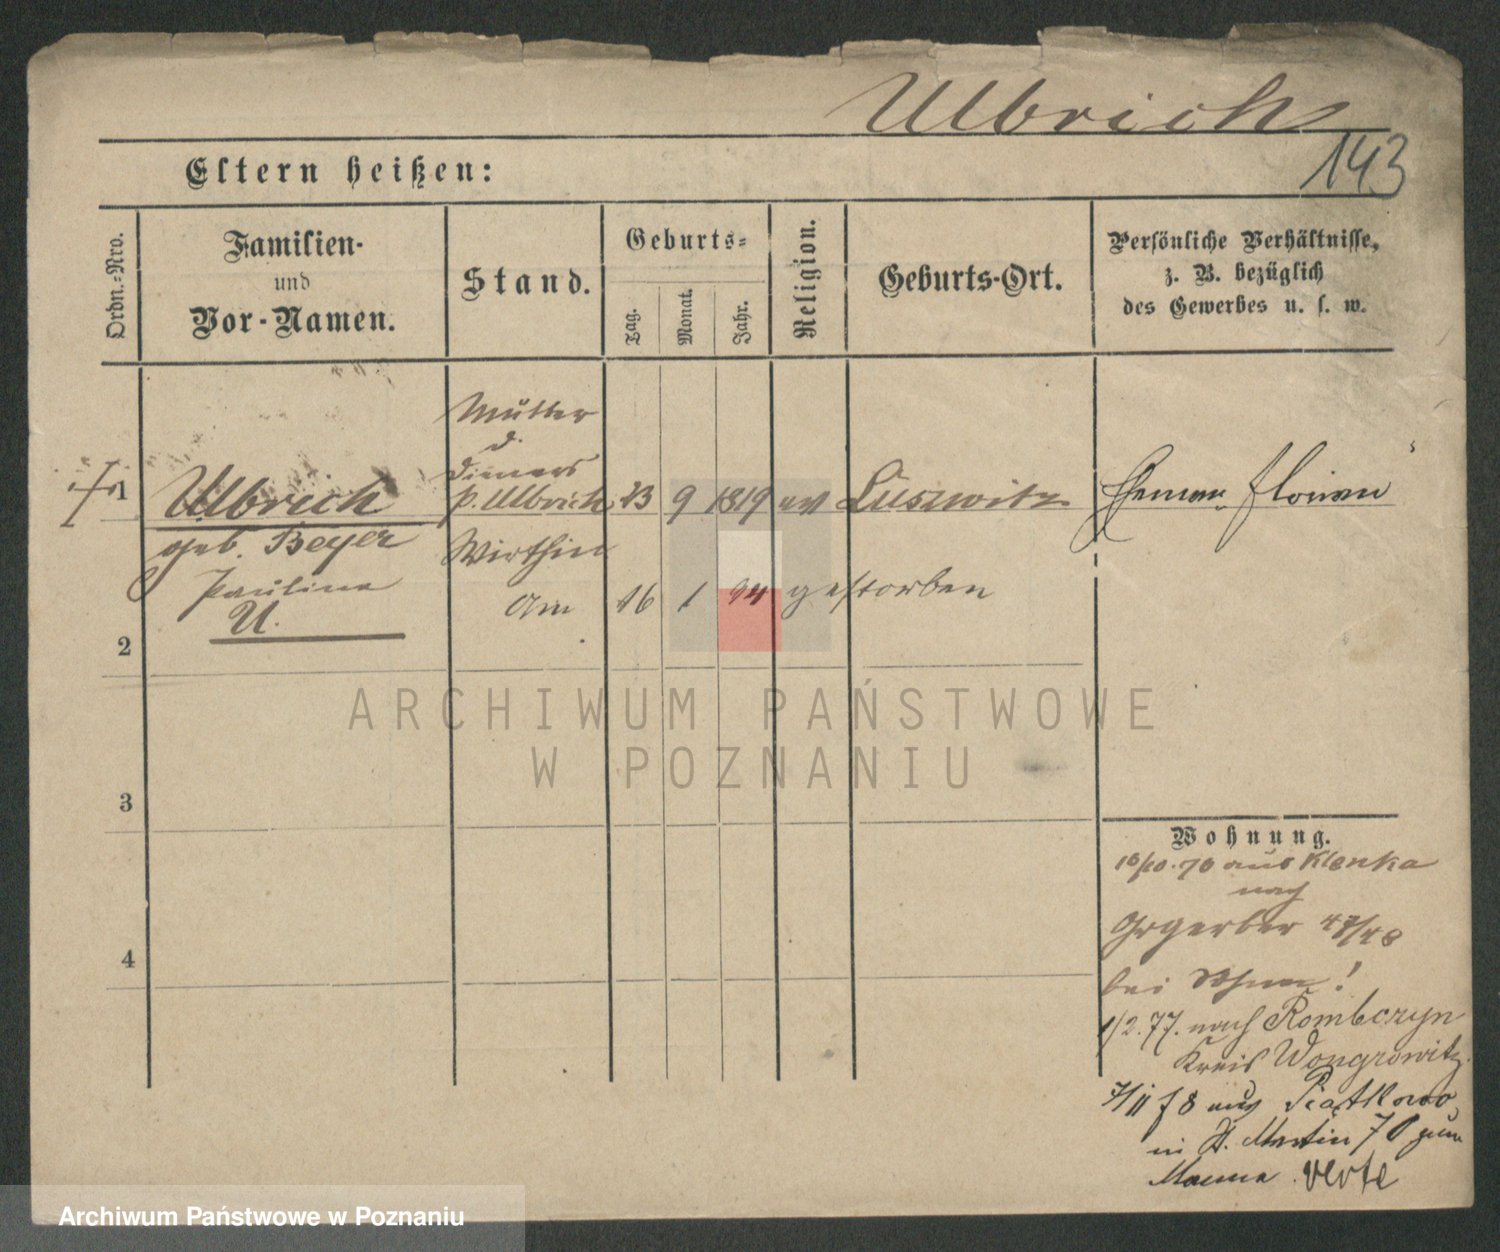 Ulbrich
143
Eltern heißen:
Ordn.-Nro.
Familien-
und
Vor-Namen.
Stand.
Geburts-
Tag.
Monat.
Jahr.
Religion.
Geburts-Ort.
Persönliche Verhältnisse,
z. B. bezüglich
des Gewerbes u. s. w.
Mutter
d.
Dieners
1 Ulbrich P. Ulbrich 23 9 1819 ev Lüszwitz Eheman Florian
geb. Beyer Wirthin
Paulina am 16 1 94 gestorben
U.
2
ARCHIWUM PAŃSTWOWE
W POZNANIU
3
Wohnung.
16/10.76 aus Klenka
nach
Grgerber 47/48
4
bei !
1/2.77. nach Rombczyn
Kreis Wongrowitz
7/11 78 aus Piatkowo
in St. Martin 70 zum
Manne. verte
Archiwum Państwowe w Poznaniu